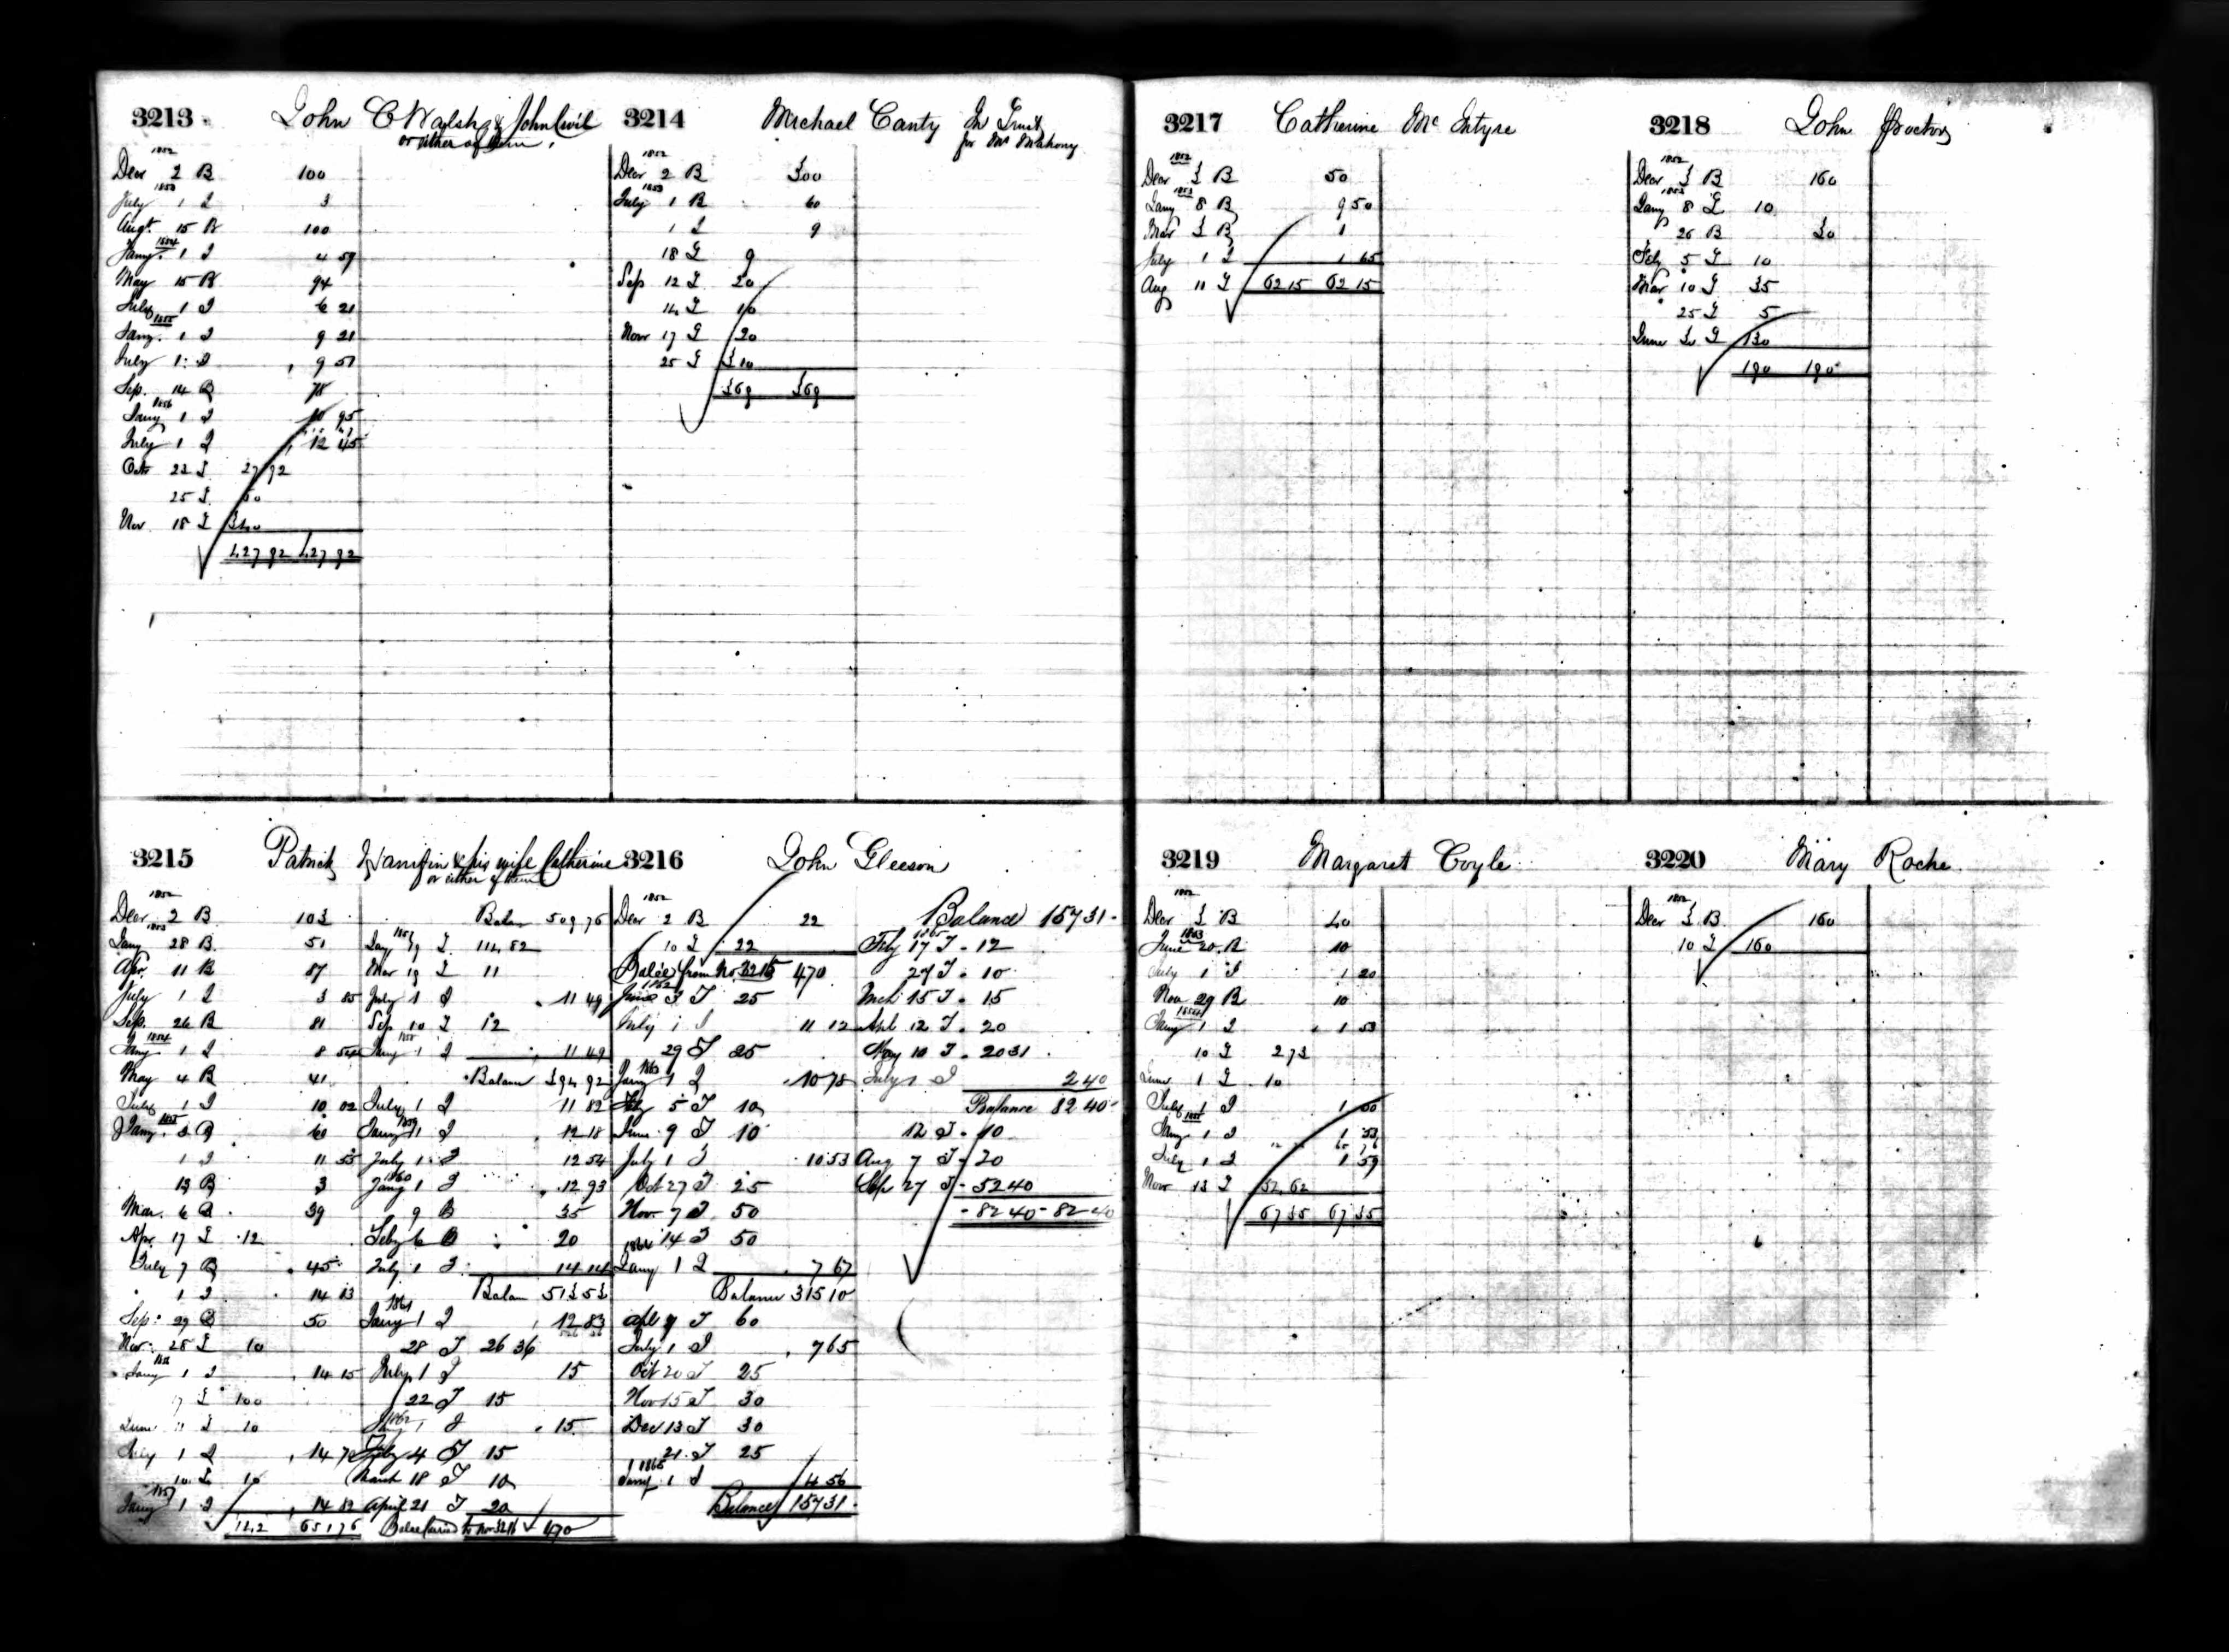 3213 John C Walsh & John Civil
or either of them.
1852
Decr 2 B 100
1853
July 1 I 3
Augt. 15 B 100
1854
Jany. 1 I 4 59
May 15 B 94
July 1 I 6 21
1855
Jany. 1 I 9 21
July 1 I 9 51
Sep. 14 B 78
1856
Jany 1 I 10 95
July 1 I 12 45
Octr 22 T 27 92
25 T 60
Nov. 18 T 340
427 92 427 92
3214 Michael Canty In Trust
for Mr Mahony
1852
Decr 2 B 300
1853
July 1 B 60
1 I 9
18 T 9
Sep 12 T 20
14 T 10
Novr 17 T 20
25 T 310
369 369
3215 Patrick Hannifin & his wife Catherine
or either of them
1852
Decr 2 B 103
1853
Jany 28 B 51
Apr. 11 B 87
July 1 I 3 85
Sep. 26 B 81
1854
Jany. 1 I 8 54
May 4 B 41
July 1 I 10 02
1855
Jany. 3 B 60
1 I 11 55
13 B 3
Mar. 6 B 39
Apr. 17 T 12
July 7 B 45
1 I 14 13
Sep. 29 B 50
Nov. 28 T 10
Jany 1 I 14 15
17 T 100
June 11 T 10
July 1 I 14 72
10 T 10
1857
Jany 1 I 14 82
142 651 76
Balan 509 76
1857
Jany 19 T 114 82
Mar 19 T 11
July 1 I 11 49
Sep 10 T 12
1858
Jany 1 I 11 49
Balan 394 92
July 1 I 11 82
1859
Jany 1 I 12 18
July 1 I 12 54
1860
Jany 1 I 12 93
9 B 35
Feby 6 B 20
July 1 I 14 14
Balan 513 53
1861
Jany 1 I 12 83
28 T 26 36
July 1 I 15
22 T 15
1862
Jany 1 I 15
Feby 4 T 15
March 18 T 10
April 21 T 20
Balce Carried to No 3216 470
3216 John Gleeson
1852
Decr 2 B 22
10 T 22
Balce from No 3215 470
1862
June 3 T 25
July 1 I 11 12
29 T 25
1863
Jany 1 I 10 78
Feby 5 T 10
June 9 T 10
July 1 I 10 53
Oct 27 T 25
Nov. 7 T 50
14 T 50
1864
Jany 1 I 7 67
Balance 315 10
Apl 9 T 60
July 1 I 7 65
Oct 20 T 25
Nov 15 T 30
Dec 13 T 30
21 T 25
1865
Jany 1 I 4 56
Balance 157 31
Balance 157 31
1865
Feby 17 T 12
27 T 10
Mch 15 T 15
Apl 12 T 20
May 10 T 20 31
July 1 I 2 40
Balance 82 40
12 T 10
Aug 7 T 20
Sep 27 T 52 40
82 40 82 40
3217 Catherine McIntyre
1852
Decr 3 B 50
1853
Jany 8 B 9 50
Mar 3 B 1
July 1 I 1 65
Aug 11 T 62 15 62 15
3218 John Proctor
1852
Decr 3 B 160
1853
Jany 8 T 10
26 B 30
Feby 5 T 10
Mar 10 T 35
25 T 5
June 30 T 130
190 190
3219 Margaret Coyle
1852
Decr 3 B 40
1853
June 20 B 10
July 1 I 1 20
Nov 29 B 10
1854
Jany 1 I 1 53
10 T 2 73
June 1 T 10
July 1 I 1 50
1855
Jany 1 I 1 53
July 1 I 1 59
Novr 13 T 52 62
67 35 67 35
3220 Mary Roche
1852
Decr 3 B 160
10 T 160